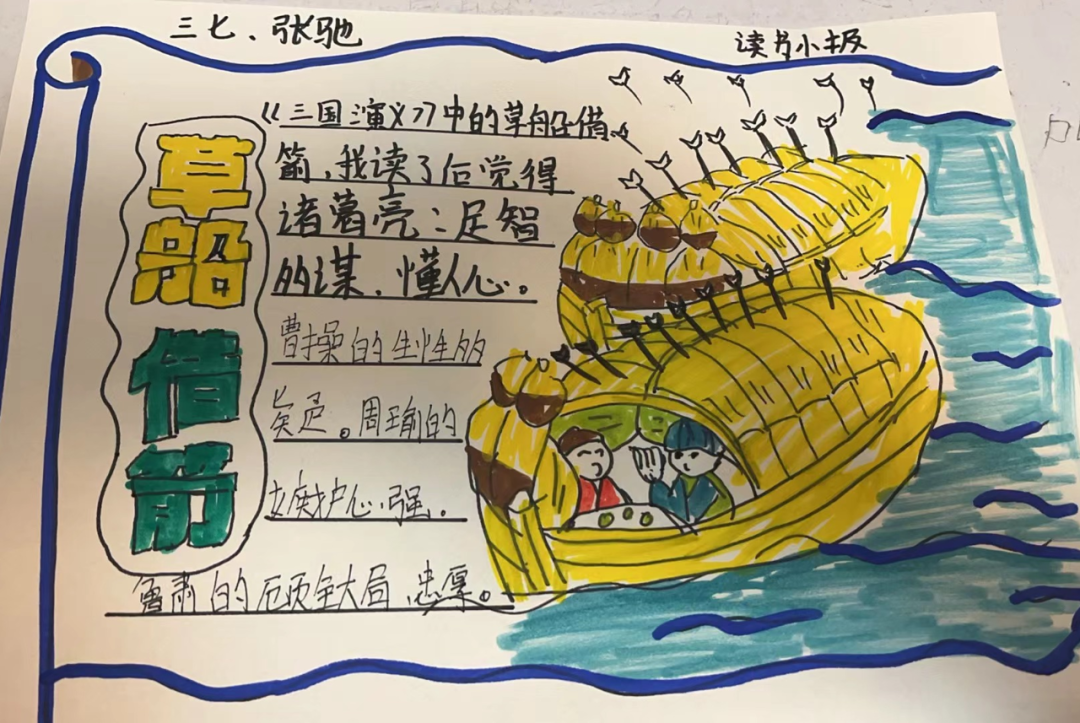 三七、张驰
读书小报
草船借箭
《三国演义》中的草船借
箭,我读了后觉得
诸葛亮:足智
多谋、懂人心。
曹操的生性多
疑。周瑜的
嫉妒心强。
鲁肃的顾全大局、忠厚。